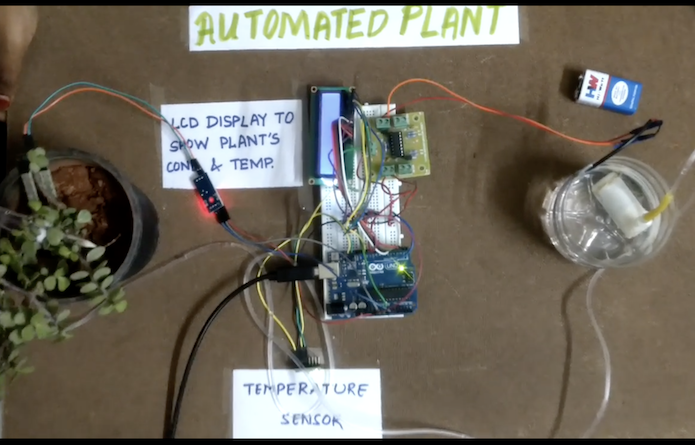 AUTOMATED PLANT
LCD DISPLAY TO
SHOW PLANT'S
& TEMP.
HW
UNO
TEMPERATURE
SENSOR